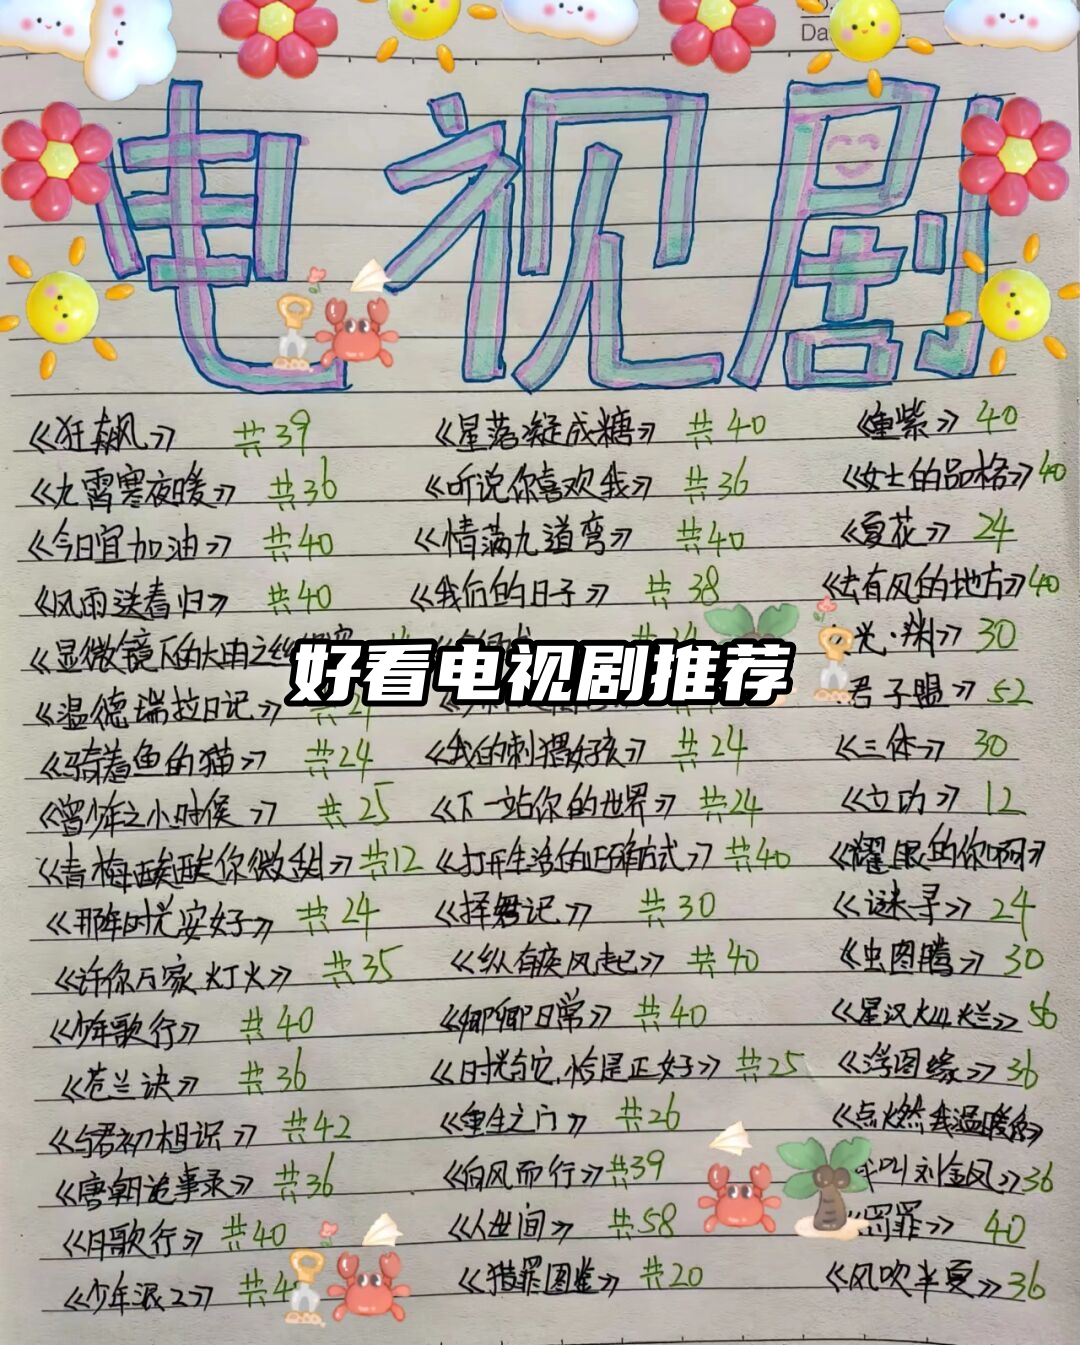 Da
电视剧
《狂飙》 共39 《星落凝成糖》 共40 《重紫》 40
《九霄寒夜暖》 共36 《听说你喜欢我》 共36 《女士的品格》40
《今日宜加油》 共40 《情满九道弯》 共40 《夏花》 24
《风雨送春归》 共40 《我们的日子》 共38 《去有风的地方》40
《显微镜下的大明之丝 共24 光·渊》 30
好看电视剧推荐
《温德瑞拉日记》 共24 君子盟》 52
《骑着鱼的猫》 共24 《我的刺猬女孩》 共24 《三体》 30
《曾少年之小时候》 共25 《下一站你的世界》 共24 《立功》 12
《青梅酸酸你微甜》共12 《打开生活的正确方式》 共40 《耀眼的你啊》
《那年时光安好》 共24 《择君记》 共30 《谜寻》 24
《许你万家灯火》 共35 《纵有疾风起》 共40 《虫图腾》 30
《少年歌行》 共40 《卿卿日常》 共40 《星汉灿烂》 56
《苍兰诀》 共36 《时光与它,恰是正好》 共25 《浮图缘》 36
《与君初相识》 共42 《重生之门》 共26 《点燃我温暖你》
《唐朝诡事录》 共36 《向风而行》共39 叫刘金凤》36
《月歌行》 共40 《人世间》 共58 罚罪》 40
《少年派2》 共4 《猎罪图鉴》 共20 《风吹半夏》36